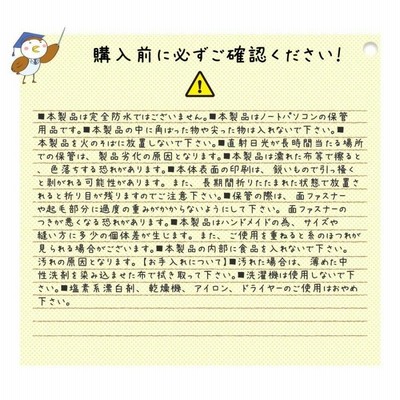 購入前に必ずご確認ください!
■本製品は完全防水ではございません。■本製品はノートパソコンの保管
用品です。■本製品の中に角ばった物や尖った物は入れないで下さい。■
本製品を火のそばに放置しないで下さい。■直射日光が長時間当たる場所
での保管は、製品劣化の原因となります。■本製品は濡れた布等で擦ると
、色落ちする恐れがあります。■本体表面の印刷は、鋭いもので引っ掻く
と剥がれる可能性があります。また、長期間折りたたまれた状態で放置さ
れると折り目が残りますのでご注意下さい。■保管の際は、面ファスナー
や起毛部分に過度の重みがかからないようにして下さい。面ファスナーの
つきが悪くなる恐れがあります。■本製品はハンドメイドの為、サイズや
縫い方に多少の個体差が生じます。また、ご使用を重ねると糸のほつれが
見られる場合がございます。■本製品の内部に食品を入れないで下さい。
汚れの原因となります。【お手入れについて】■汚れた場合は、薄めた中
性洗剤を染み込ませた布で拭き取って下さい。■洗濯機は使用しないで下
さい。■塩素系漂白剤、乾燥機、アイロン、ドライヤーのご使用はおやめ
下さい。